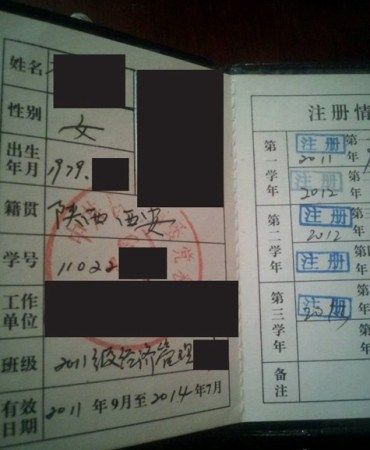 姓名
性别 女
出生年月 1979.
籍贯 陕西西安
学号 11022
工作单位
班级 2011级经济管理
有效日期 2011年9月至2014年7月
注册情
第一学年 注册 2011年
注册 2012
第二学年 注册 2012
注册
第三学年 注册
备注